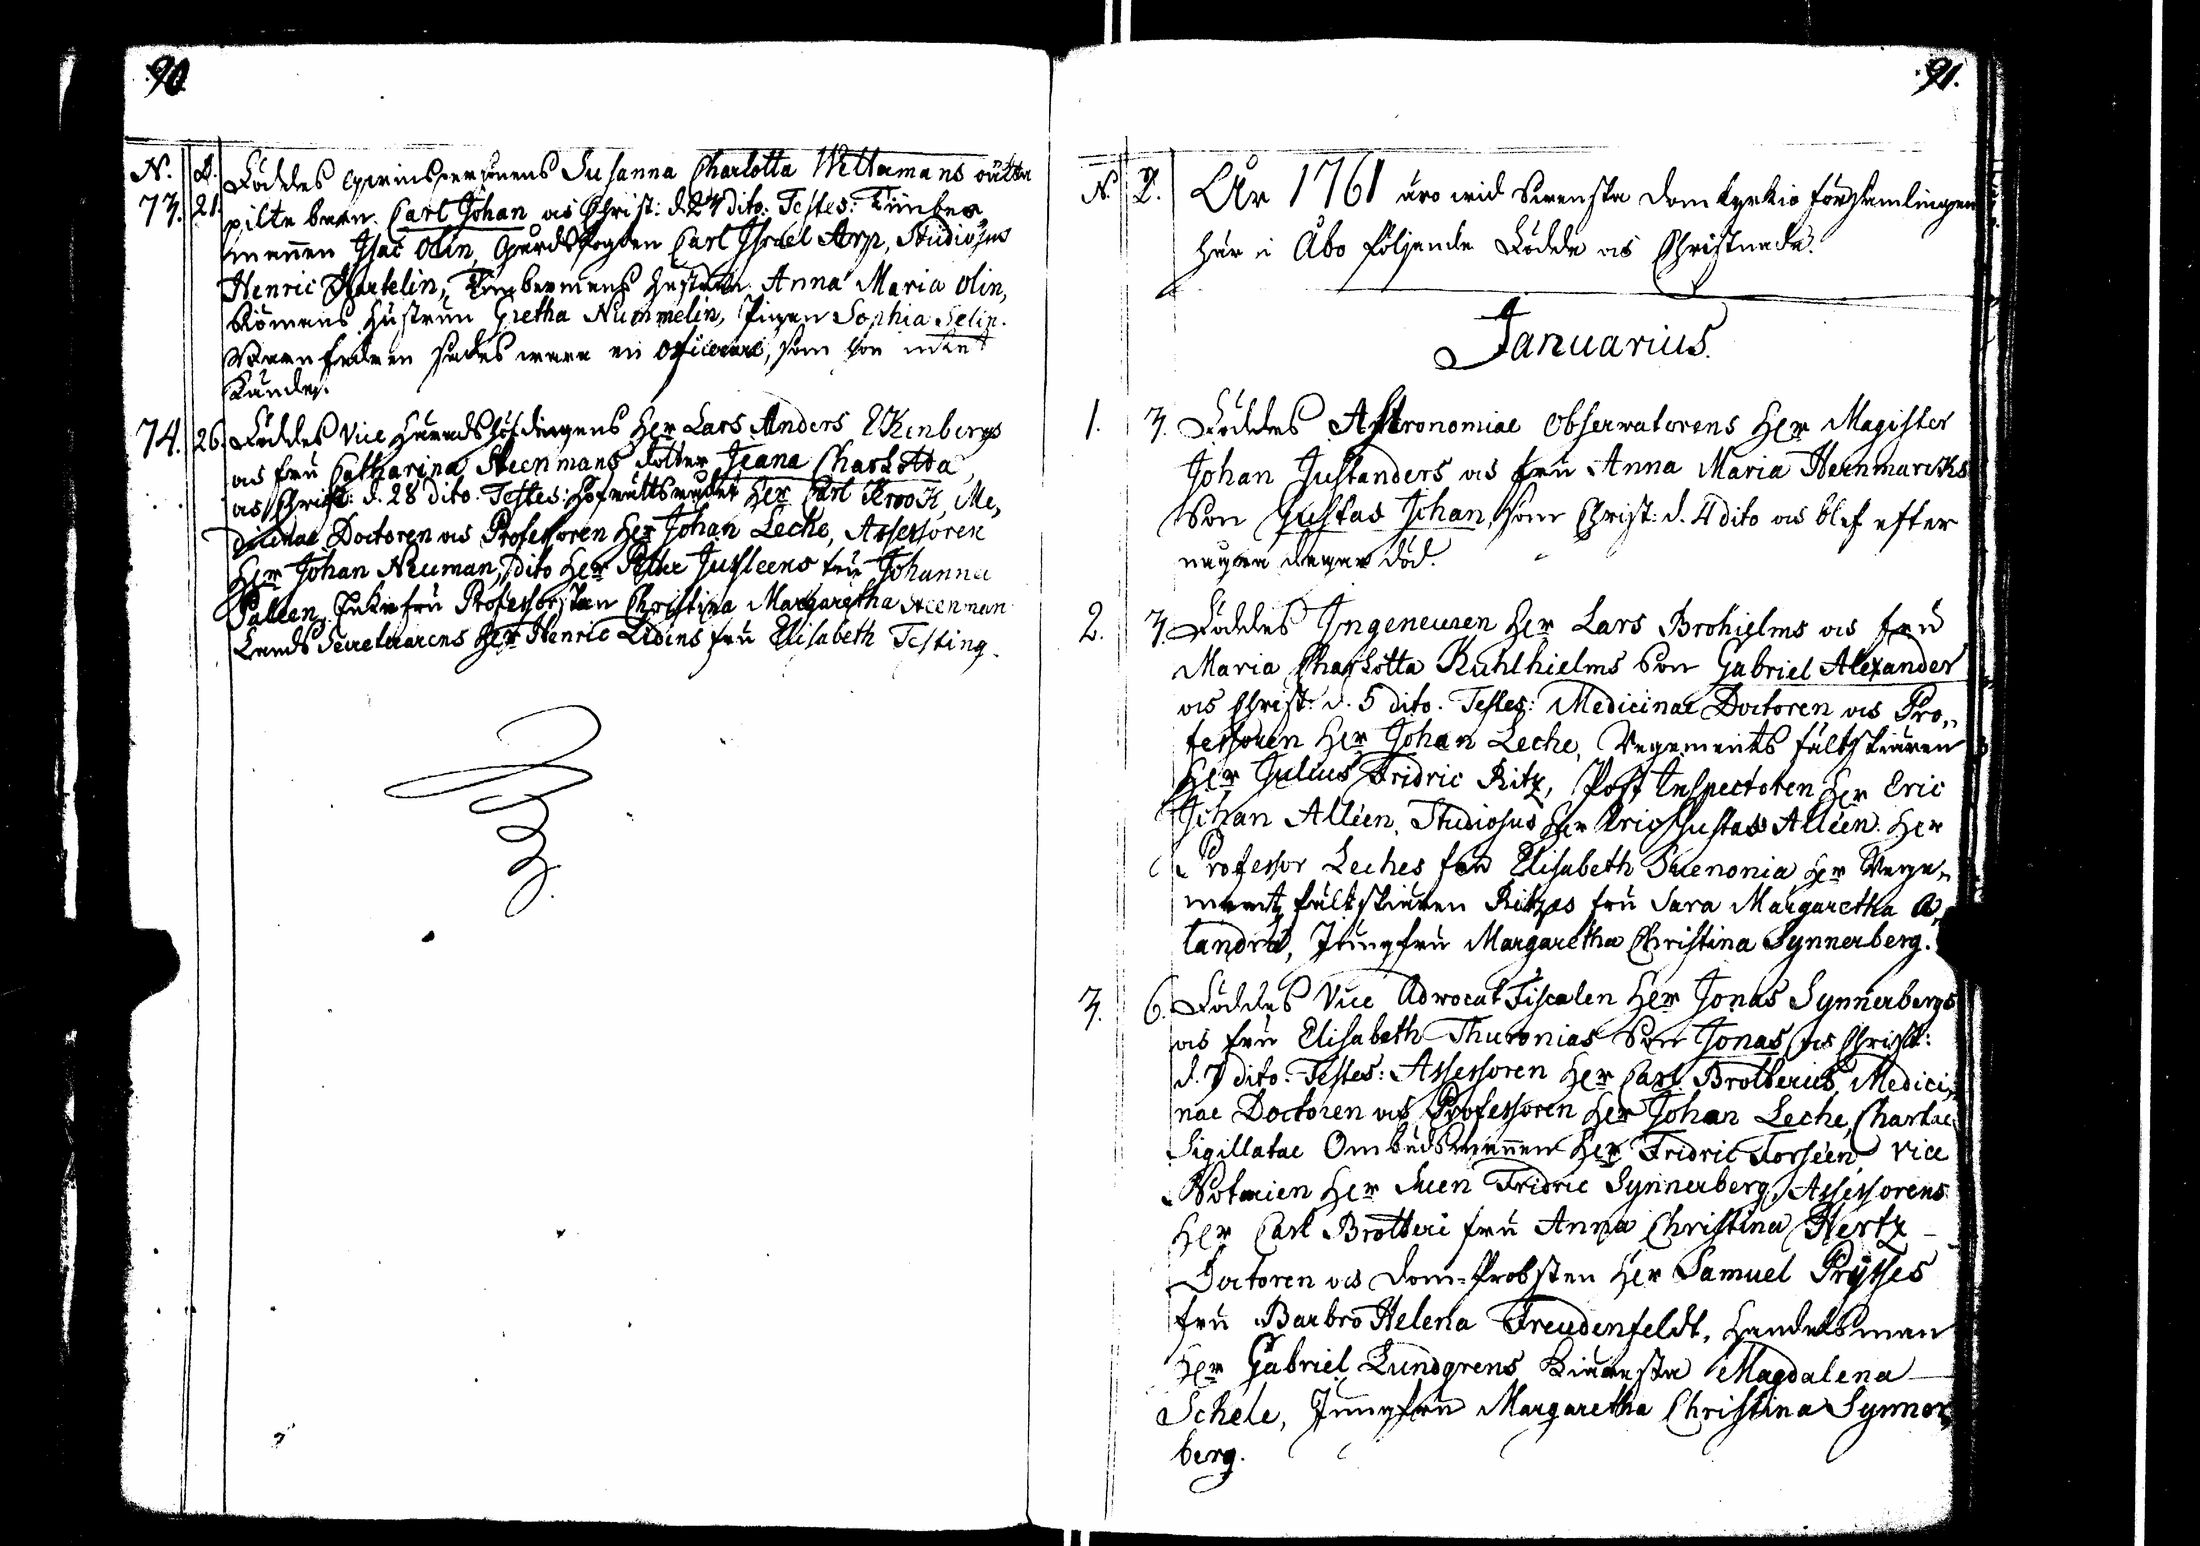 90.
N. D. Föddes qvinspersonens Susanna Charlotta Wittermans oäkta
73. 21. pilte barn Carl Johan os Christ: d. 23 dito. Testes: Timber
mannen Isac Olin, Gårdsfogden Carl Israel Arp, Studiosus
Henric Hartelin, Timbermans hustrun Anna Maria Olin,
hustrun Gretha Nummelin, Pigan Sophia Selin.
Barnfadren sades vara en Officerare, som hon intet
kände.
74. 26. Föddes Vice Häradshöfdingens Her Lars Anders Ekenbergs
os fru Catharina Steenmans dotter Jeana Charlotta
os Christ: d. 28 dito. Testes: Hofrätts rådet Her Carl Krook, Me,,
dicinae Doctoren os Professoren Her Johan Leche, Assessoren
Her Johan Neuman, dito Her Petter Jusleens fru Johanna
Paleen, Enkefru Professorskan Christina Margaretha Steenman
Lands Secreterarens Her Henric Lidens fru Elisabeth Testing.
91.
N. D. År 1761 äro wid Swenska Domkyrkio församlingen
här i Åbo följande Födde os Christnade.
Januarius.
1. 3. Föddes Astronomiae Observatorens Her Magister
Johan Justanders os fru Anna Maria Hernmarcks
Son Gustas Johan, som Christ: d. 4 dito os blef efter
några dagar död.
2. 3. Föddes Ingeneuren Her Lars Brohielms os fru
Maria Charlotta Kuhlhielms Son Gabriel Alexander
os Christ: d. 5 dito. Testes: Medicinae Doctoren os Pro,,
fessoren Her Johan Leche, Regements fältskiären
Her Julius Fridric Ritz, Post Inspectoren Her Eric
Johan Alléen, Studiosus Her Eric Gustas Alléen. Her
Professor Leches fru Elisabeth Suenonia Her Rege,,
ments fältskiären Ritzes fru Sara Margaretha
landra, Jungfru Margaretha Christina Synnerberg.
3. 6. Föddes Vice Advocat Fiscalen Her Jonas Synnerbergs
os fru Elisabeth Thuronias Son Jonas os Christ:
d. 7 dito. Testes: Assessoren Her Carl Brotherus, Medici,,
nae Doctoren os Professoren Her Johan Leche, Chartae
Sigillatae Ombudsmannen Her Fridric Torséen, Vice
Notarien Her Suen Fridric Synnerberg, Assessorens
Her Carl Brotheri fru Anna Christina Hertz
Doctoren os Dom-Probsten Her Samuel Prysses
fru Barbro Helena Freudenfeldt, Handelsman
Her Gabriel Lundgrens Kiäresta Magdalena
Schele, Jungfru Margaretha Christina Synner,,
berg.